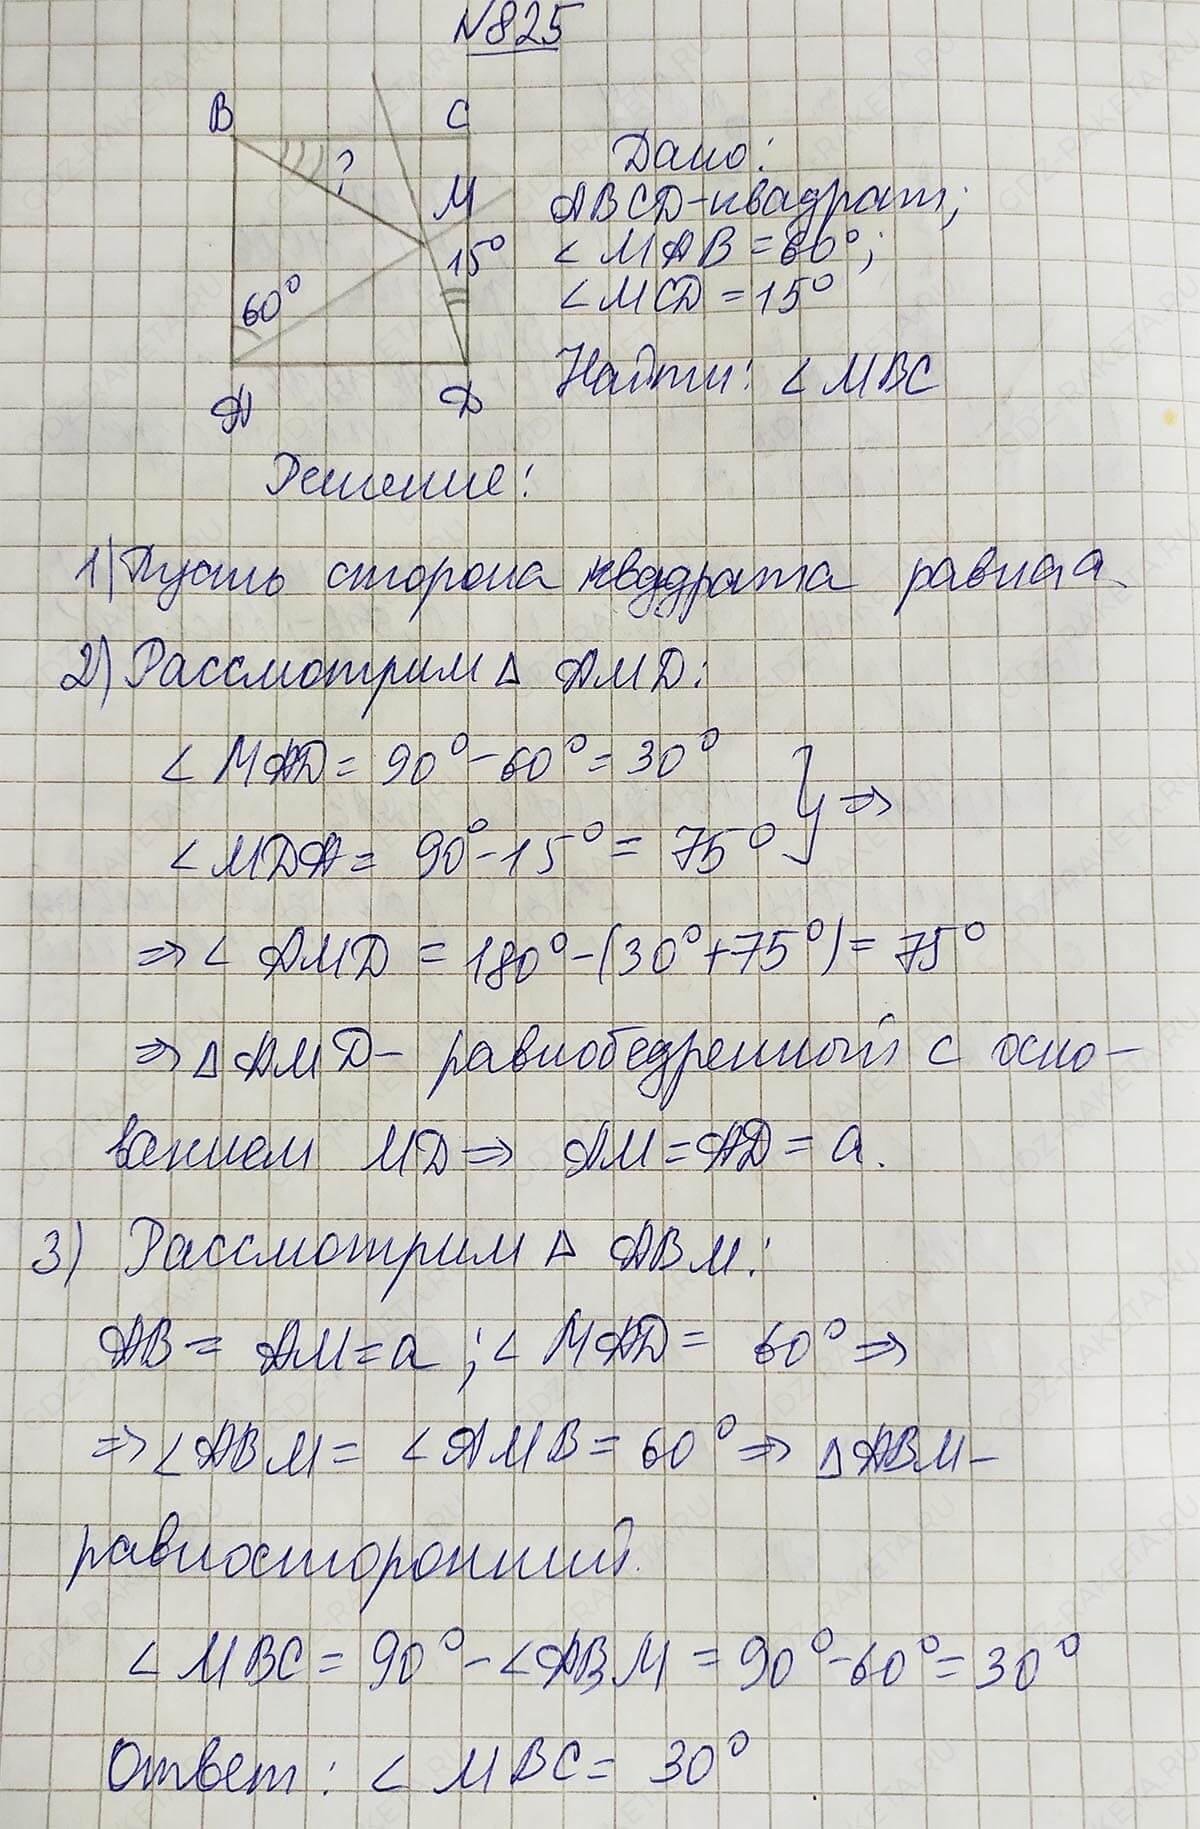 №825
B C
? M
15°
60°
A D
Дано:
ABCD-квадрат;
∠MAB=60°;
∠MCD=15°
Найти: ∠MBC
Решение:
1) Пусть сторона квадрата равна a.
2) Рассмотрим △ AMD:
∠MAD= 90°-60°=30°
∠MDA= 90°-15°= 75° } ⇒
⇒∠ AMD = 180°-(30°+75°)= 75°
⇒△AMD- равнобедренный с осно-
ванием MD⇒ AM=AD=a.
3) Рассмотрим △ ABM:
AB= AM=a ; ∠MAD= 60°⇒
⇒∠ABM= ∠AMB=60°⇒ △ABM-
равносторонний.
∠MBC= 90°-∠ABM =90°-60°=30°
Ответ: ∠MBC= 30°
GDZ-RAKETA.RU